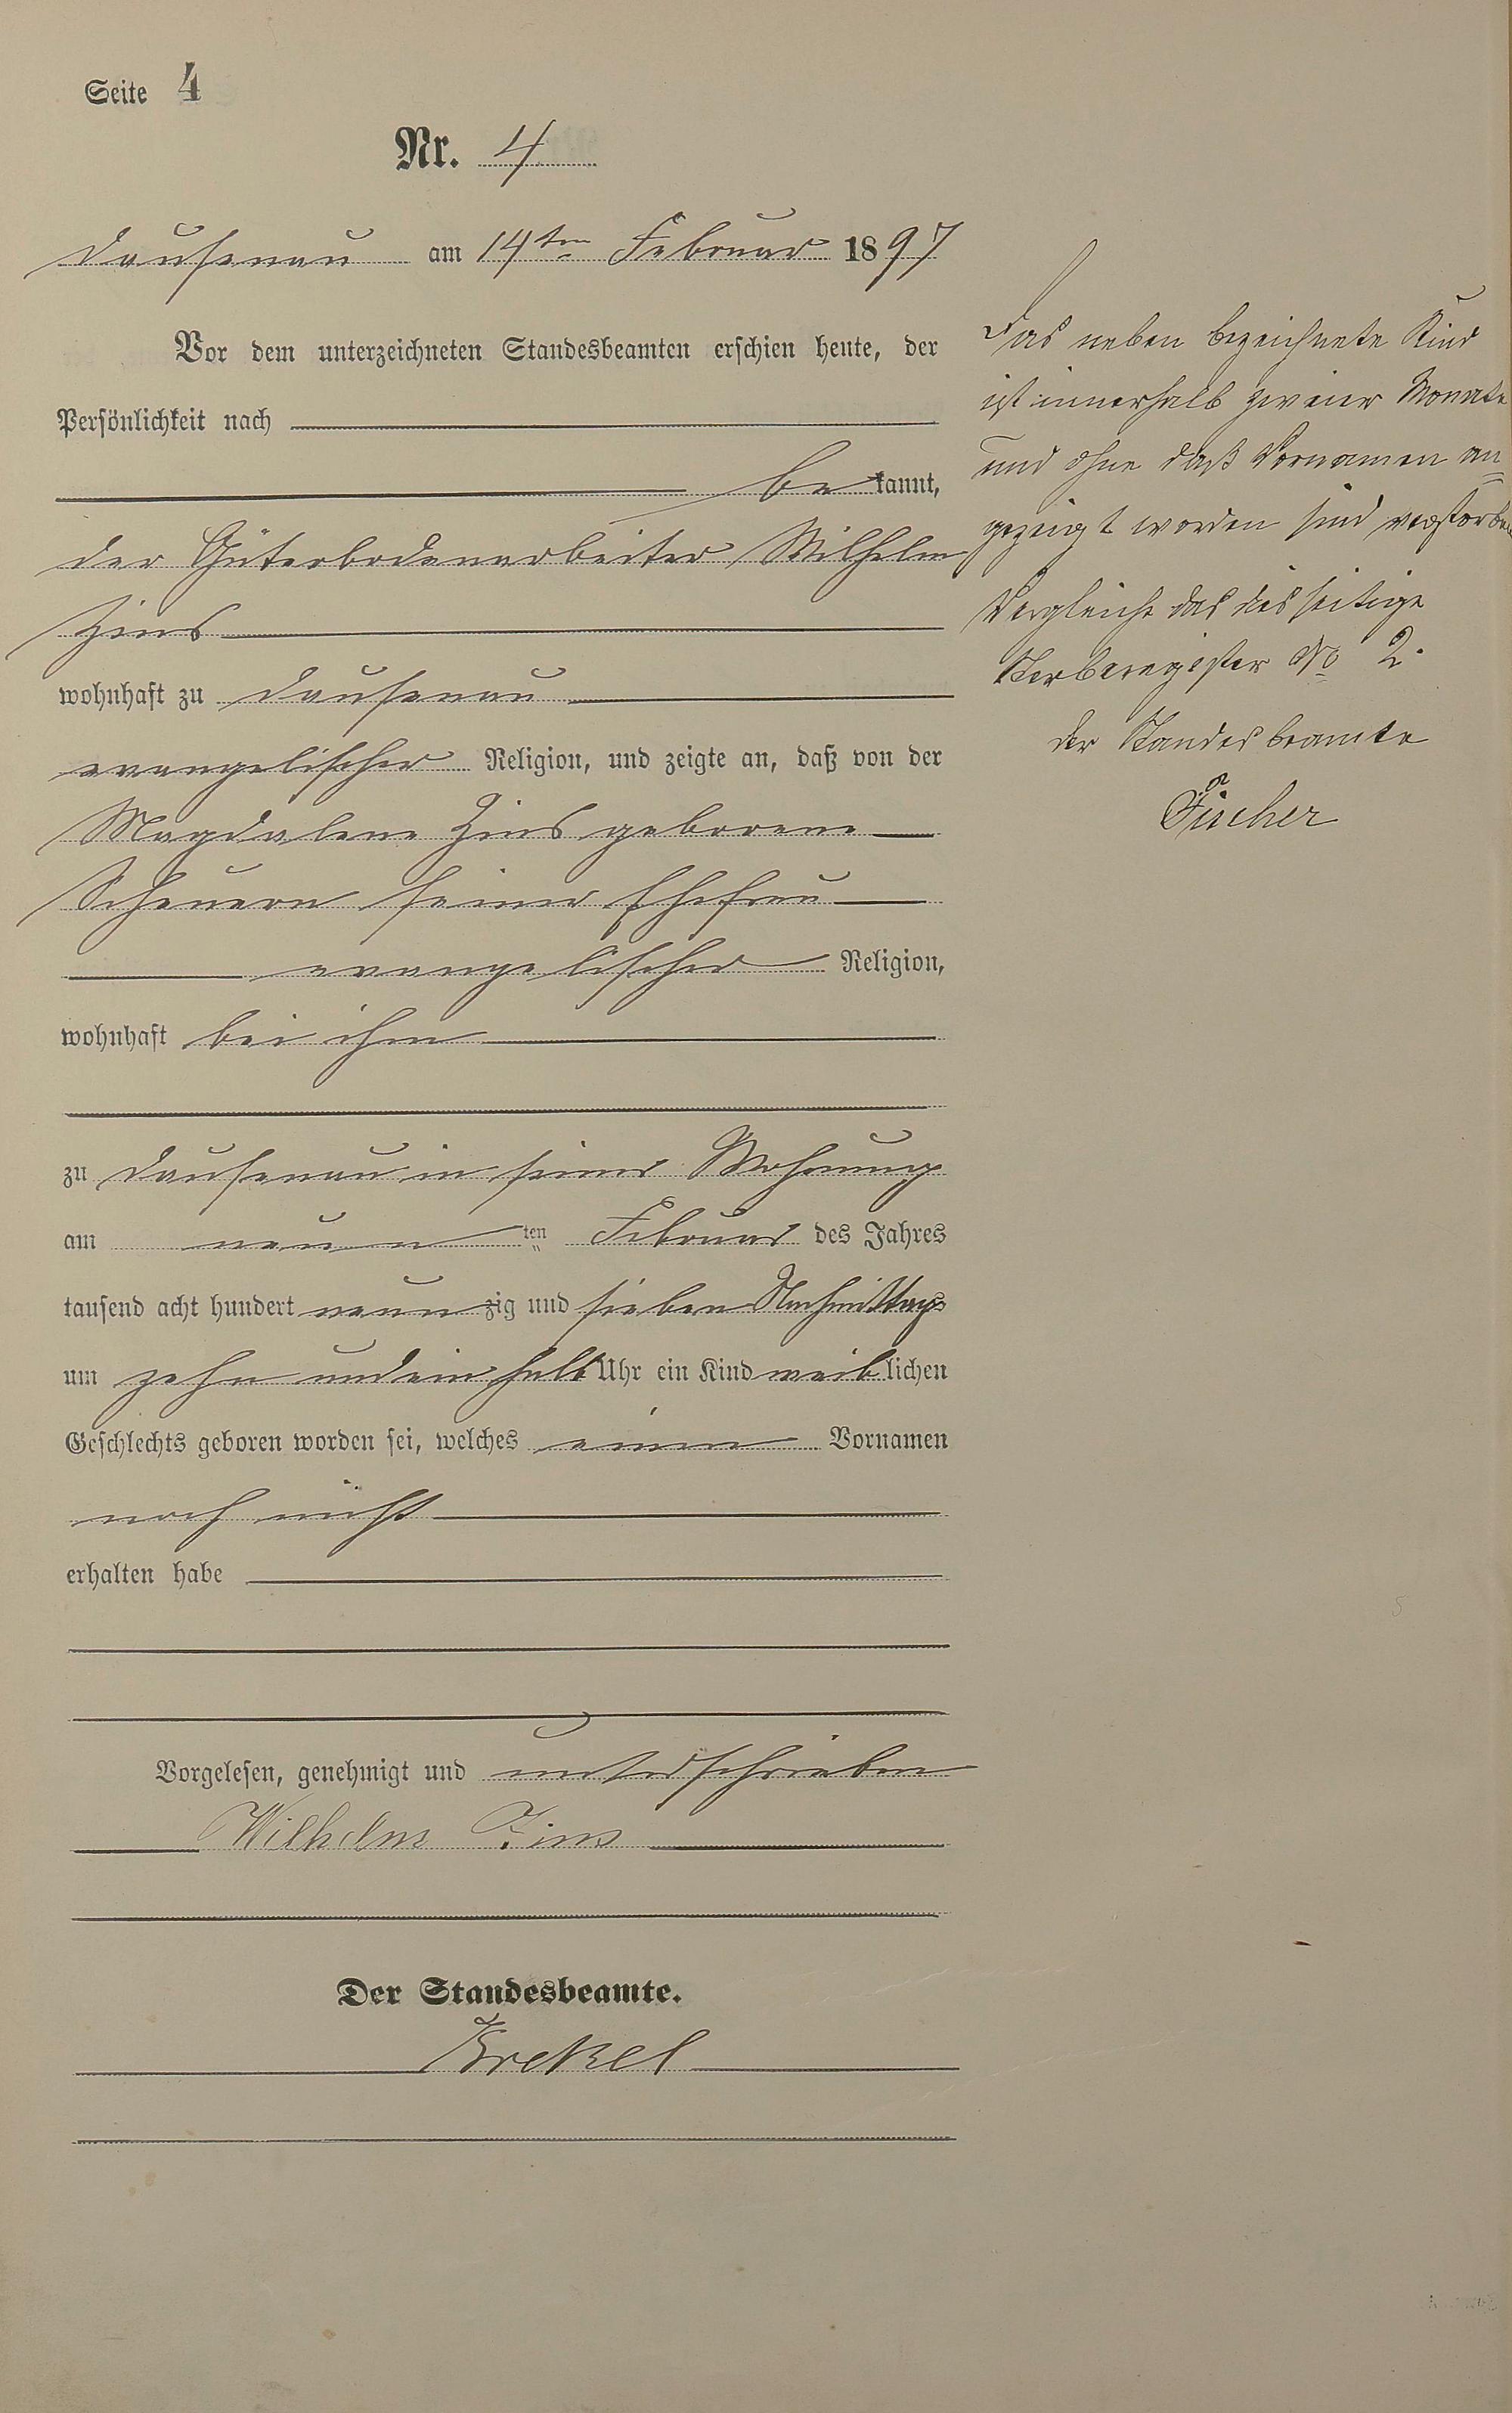 Seite 4
Nr. 4
Dausenau am 14ten Februar 1897
Vor dem unterzeichneten Standesbeamten erschien heute, der
Persönlichkeit nach
bekannt,
der Güterbodenarbeiter Wilhelm
Zins
wohnhaft zu Dausenau
evangelischer Religion, und zeigte an, daß von der
Magdalene Zins geborene
Scheuern seiner Ehefrau
evangelischer Religion,
wohnhaft bei ihm
zu Dausenau in seiner Wohnung
am neunten Februar des Jahres
tausend acht hundert neunzig und sieben Nachmittags
um zehn und ein halb Uhr ein Kind weiblichen
Geschlechts geboren worden sei, welches einen Vornamen
noch nicht
erhalten habe
Vorgelesen, genehmigt und unterschrieben
Wilhelm Zins
Der Standesbeamte.
Krekel
Das neben bezeichnete Kind
ist innerhalb zweier Monate
und ohne daß Vornamen an
gezeigt worden sind verstorben
Vergleiche das diesseitige
Sterberegister No 2.
der Standesbeamte
Fischer